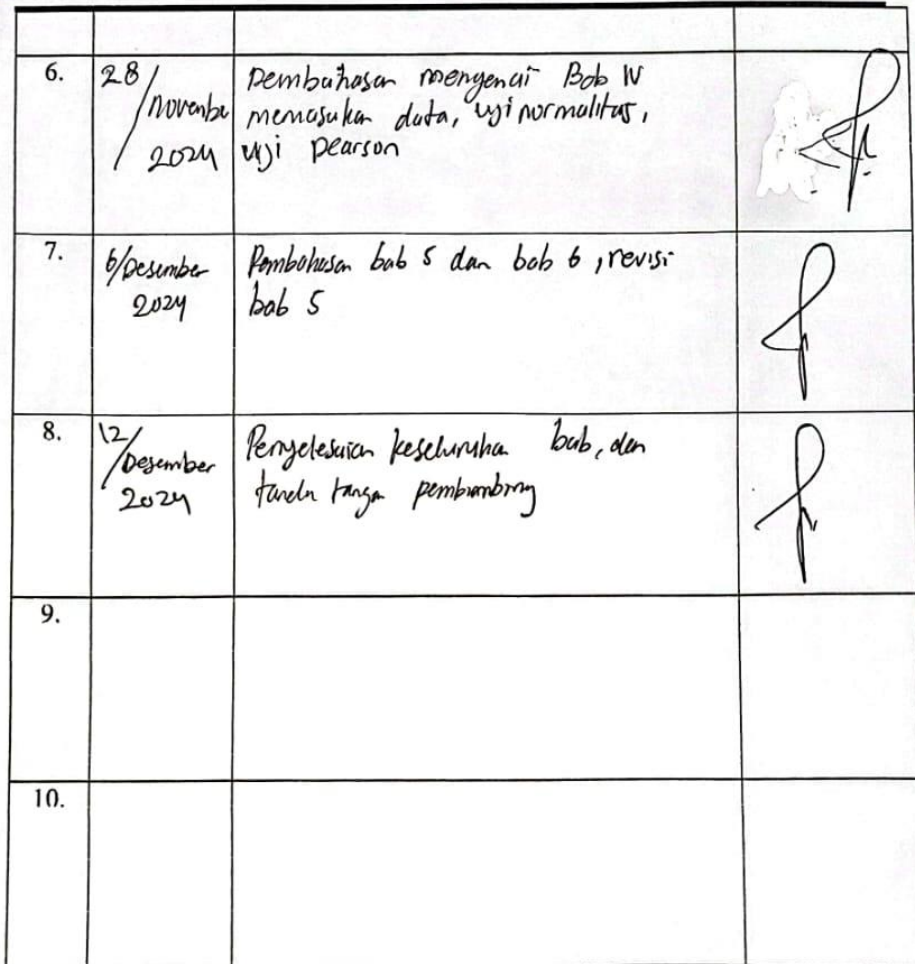 6.
28/
November
2024
pembahasan mengenai Bab IV
memasukan data, uji normalitas,
uji pearson
7.
6/Desember
2024
Pembahasan bab 5 dan bab 6, revisi
bab 5
8.
12/
Desember
2024
Penyelesaian keseluruhan bab, dan
tanda tangan pembimbing
9.
10.